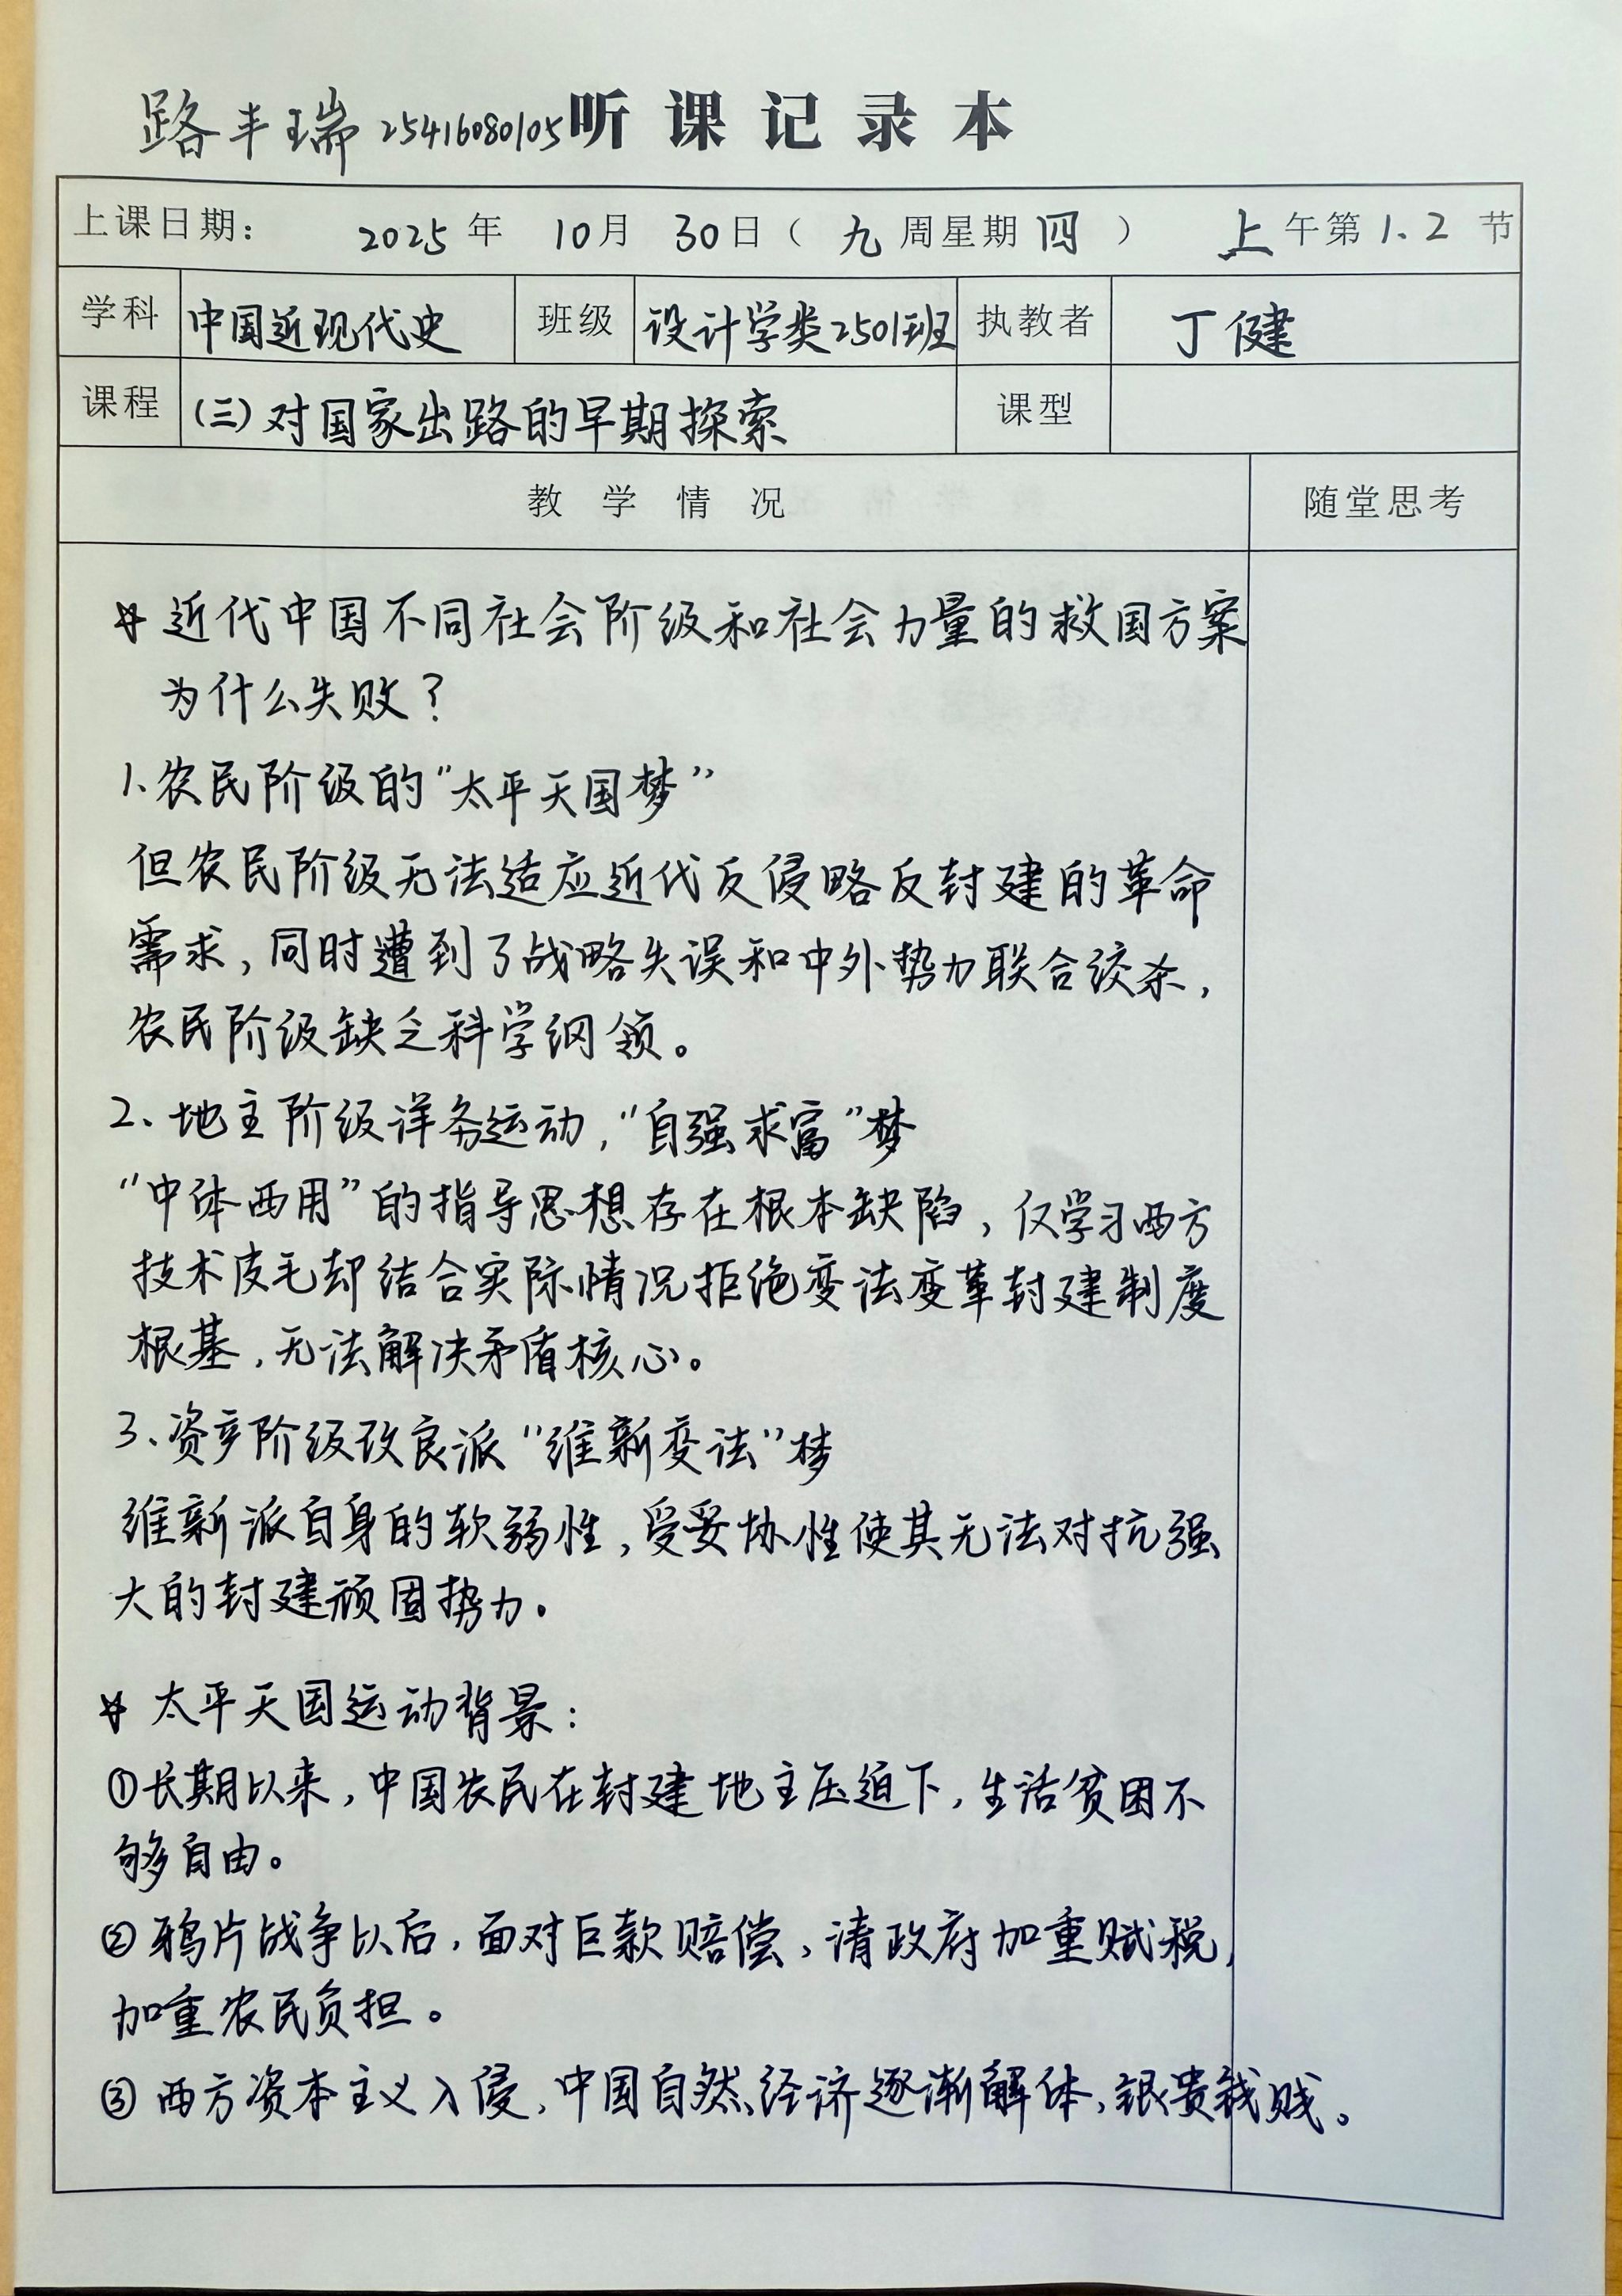 路丰瑞 25416080105 听课记录本
上课日期： 2025 年 10 月 30 日（ 九 周星期 四 ） 上 午第 1、2 节
学科 中国近现代史 班级 设计学类2501班 执教者 丁健
课程 (三)对国家出路的早期探索 课型
教学情况 随堂思考
近代中国不同社会阶级和社会力量的救国方案
为什么失败？
1、农民阶级的“太平天国梦”
但农民阶级无法适应近代反侵略反封建的革命
需求，同时遭到了战略失误和中外势力联合绞杀，
农民阶级缺乏科学纲领。
2、地主阶级洋务运动，“自强求富”梦
“中体西用”的指导思想存在根本缺陷，仅学习西方
技术皮毛却结合实际情况拒绝变法变革封建制度
根基，无法解决矛盾核心。
3、资产阶级改良派“维新变法”梦
维新派自身的软弱性，受妥协性使其无法对抗强
大的封建顽固势力。
太平天国运动背景：
①长期以来，中国农民在封建地主压迫下，生活贫困不
够自由。
②鸦片战争以后，面对巨款赔偿，清政府加重赋税，
加重农民负担。
③西方资本主义入侵，中国自然经济逐渐解体，银贵钱贱。